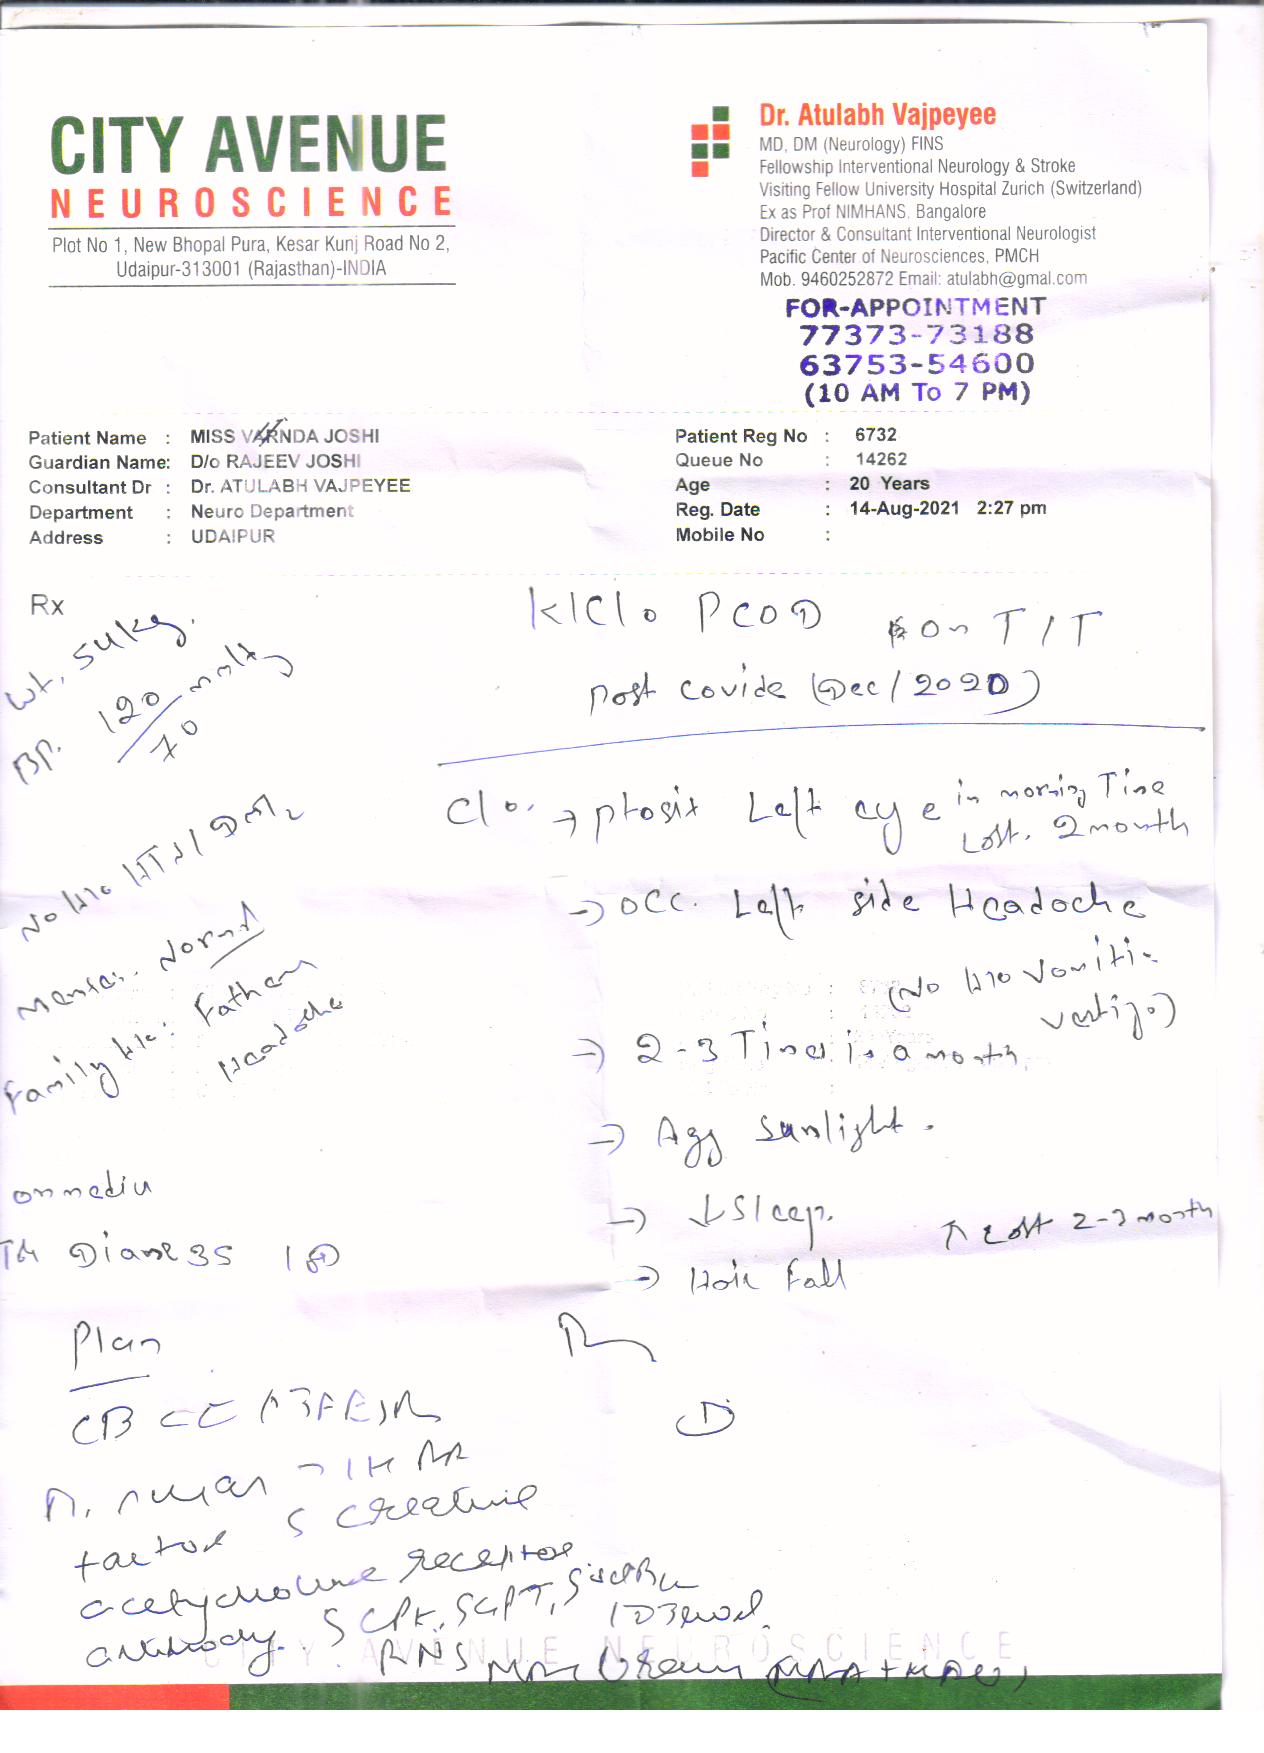 CITY AVENUE
NEUROSCIENCE
Plot No 1, New Bhopal Pura, Kesar Kunj Road No 2,
Udaipur-313001 (Rajasthan)-INDIA
Dr. Atulabh Vajpeyee
MD, DM (Neurology) FINS
Fellowship Interventional Neurology & Stroke
Visiting Fellow University Hospital Zurich (Switzerland)
Ex as Prof NIMHANS. Bangalore
Director & Consultant Interventional Neurologist
Pacific Center of Neurosciences, PMCH
Mob. 9460252872 Email: atulabh@gmal.com
FOR-APPOINTMENT
77373-73188
63753-54600
(10 AM To 7 PM)
Patient Name : MISS VARNDA JOSHI
Guardian Name: D/o RAJEEV JOSHI
Consultant Dr : Dr. ATULABH VAJPEYEE
Department : Neuro Department
Address : UDAIPUR
Patient Reg No : 6732
Queue No : 14262
Age : 20 Years
Reg. Date : 14-Aug-2021 2:27 pm
Mobile No :
Rx
K/C/o PCOD on T/T
post covide (Dec/2020)
wt.
BP. 120/70
No H/o HTN/DM
Menses. Normal
Family H/o: Father
Headache
C/o. → ptosix Left eye in morning Time
Last. 2 month
→ occ. Left side Headache
(No H/o vomiti
vertigo)
→ 2-3 Times in a month
→ Agg sunlight.
→ ↓ Sleep.
→ Hair Fall ↑ Last 2-3 month
on
Diane 35 1 OD
Plan
CBC ESR
factor S creatine
acetycholine receptor
antibody. S CPK, SGPT,
RNS Brain
CITY AVENUE NEUROSCIENCE